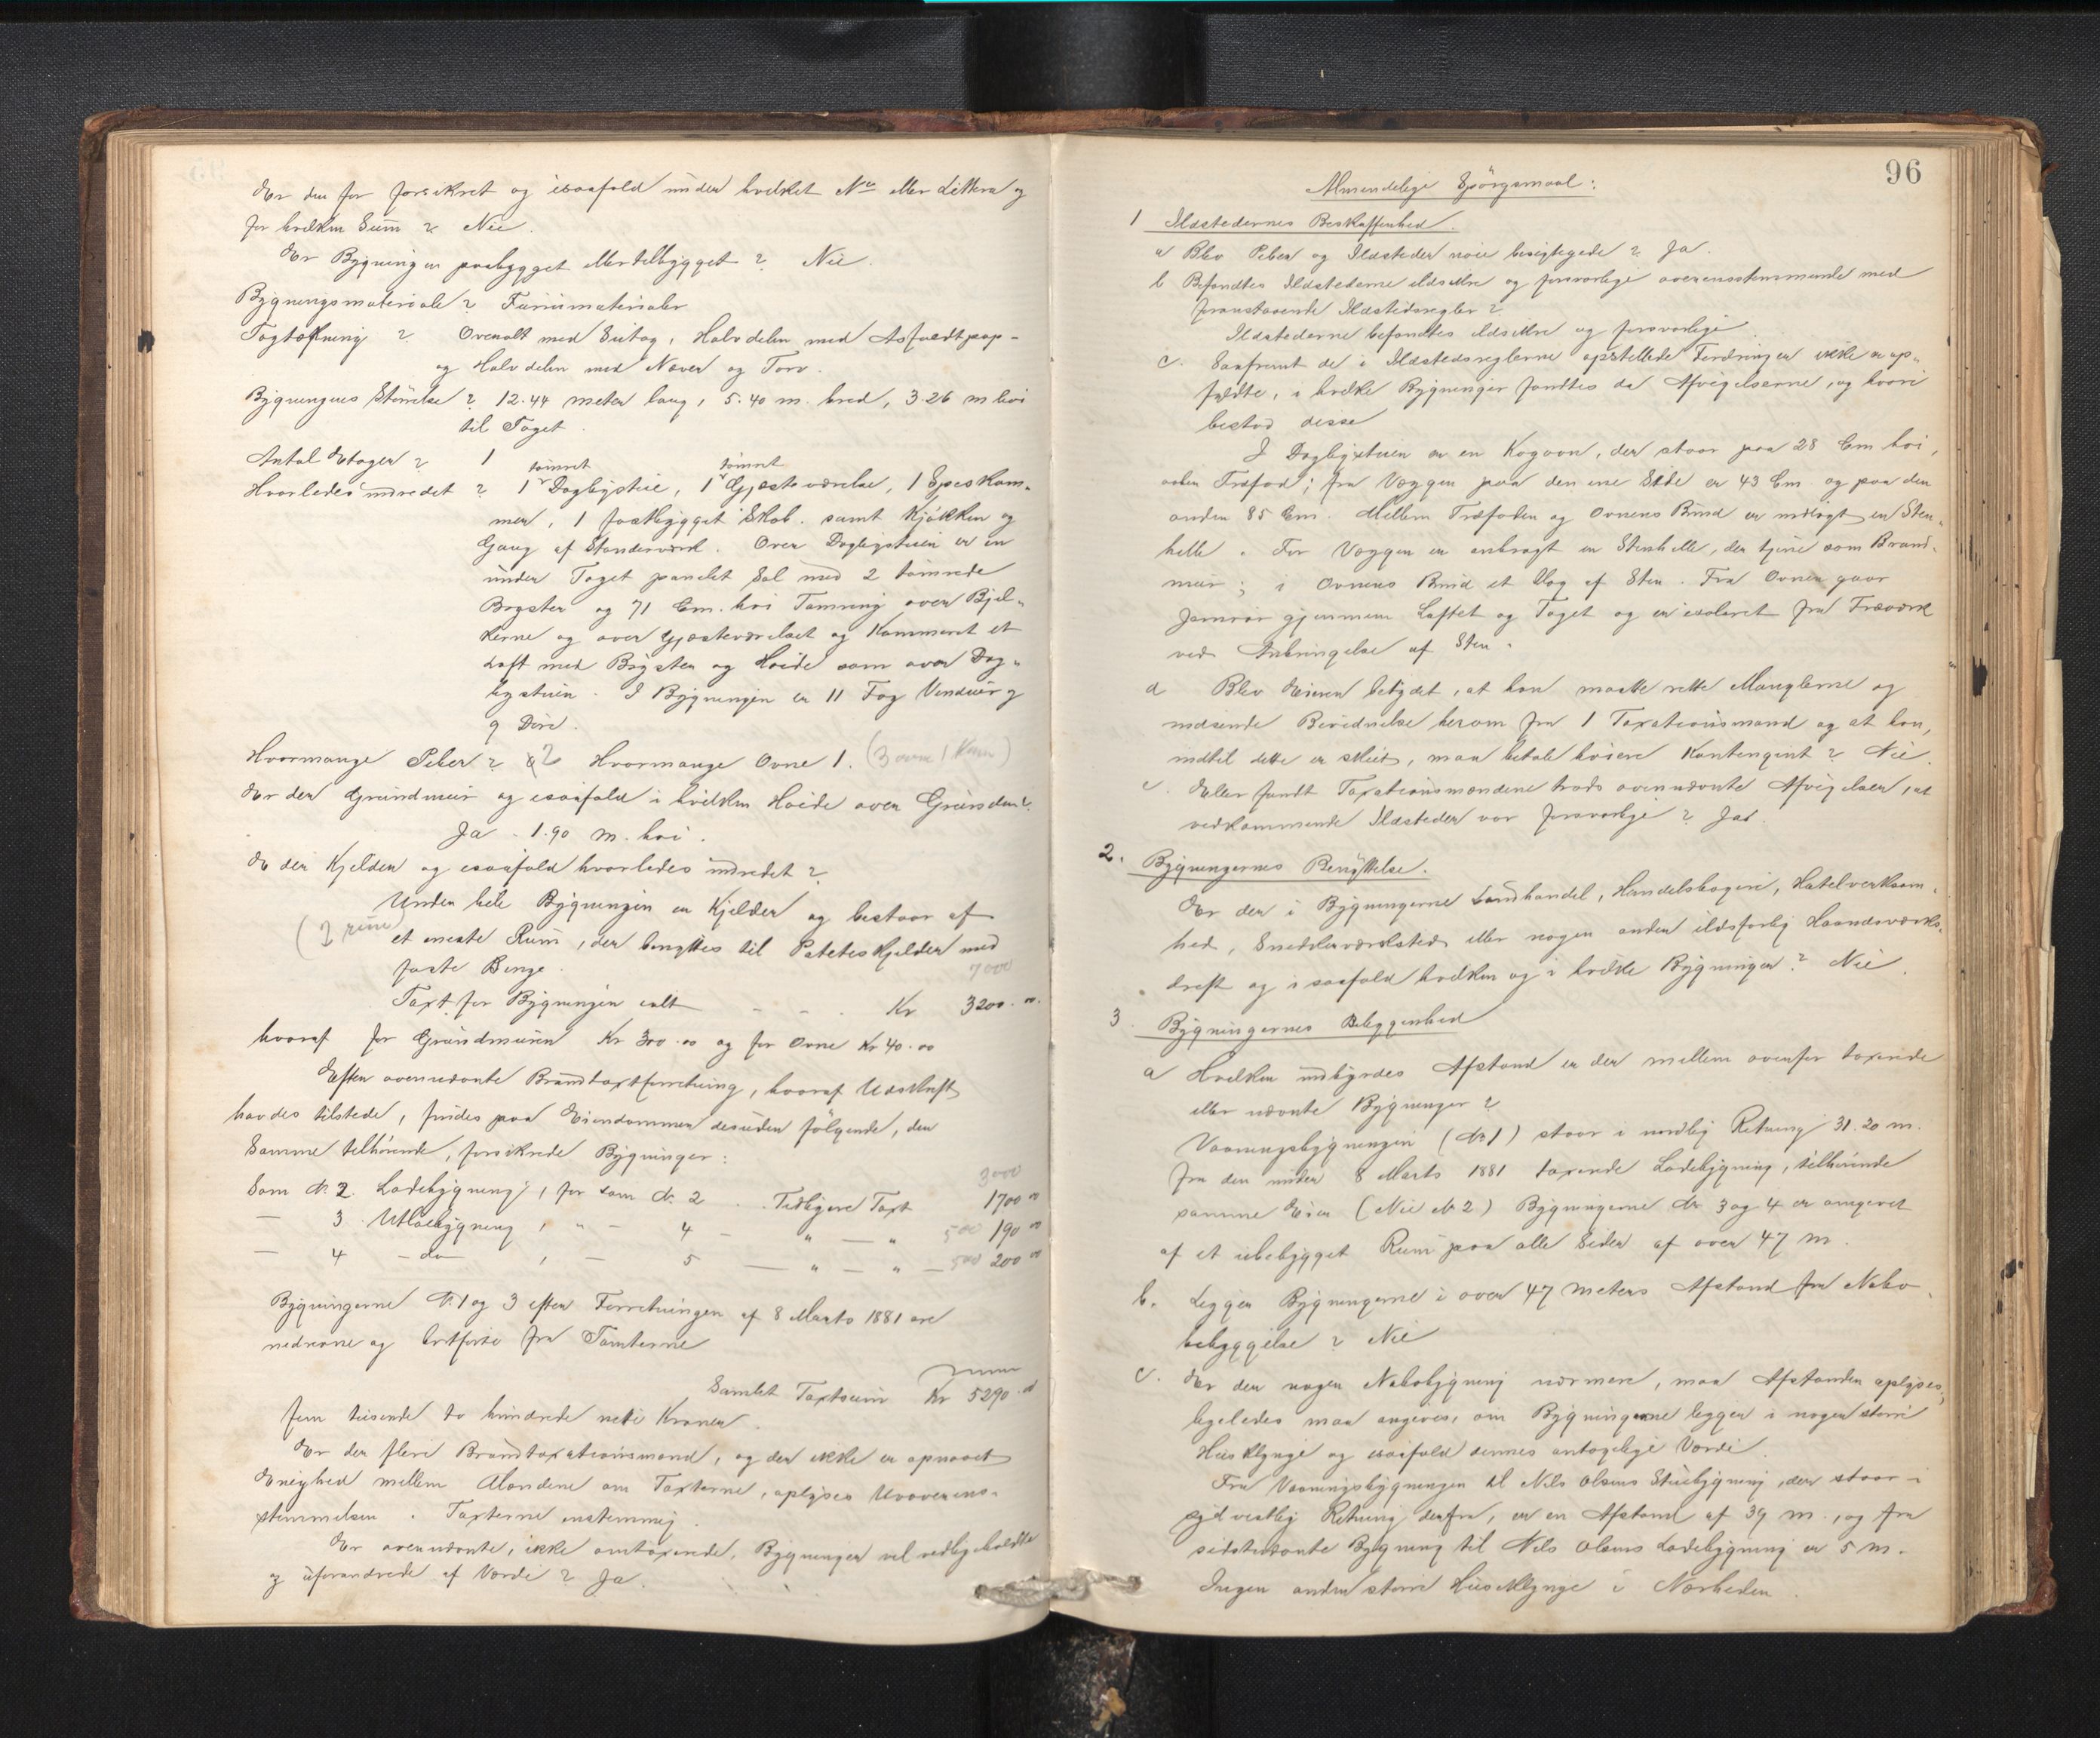 Er den før forsikret og isaafald under hvilket No eller Littera og
for hvilken Sum? Nei.
Er Bygningen paabygget eller tilbygget? Nei.
Bygningsmateriale? Furumaterialer
Tagtækning? Overalt med Sutag, Halvdelen med Asfaltpap-
og Halvdelen med Næver og Torv.
Bygningens Størrelse? 12.44 meter lang, 5.40 m. bred, 3.26 m høi
til Taget.
Antal Etager? 1
tømret tømret
Hvorledes indredet? 1 Dagligstue, 1 Gjæsteværelse, 1 Spiskam-
mer, 1 fastbygget Skab. samt Kjøkken og
Gang af Standerværk. Over Dagligstuen er en
under Taget panelet Sal med 2 tømrede
Bryster og 71 Cm. høi Tømring over Bjel-
kerne og over Gjæsteværelset og Kammeret et
Loft med Bryster og Høide som over Dag-
ligstuen. I Bygningen er 11 Fag Vinduer og
9 Døre.
Hvormange Piber? 2 Hvormange Ovne 1. (3 ovne 1 Kam)
Er der Grundmur og isaafald i hvilken Høide over Grunden?
Ja. 1.90 m. høi.
Er der Kjelder og isaafald hvorledes indredet?
Under hele Bygningen er Kjelder og bestaar af
(2 rum)
et eneste Rum, der benyttes til Poteteskjelder med
faste Binge.
7000
Taxt for Bygningen ialt - - . Kr 3200.00.
hvoraf for Grundmuren Kr 300.00 og for Ovne Kr 40.00
Efter ovennævnte Brandtaxtforretning, hvoraf Udskrift
havdes tilstede, findes paa Eiendommen desuden følgende, den
Samme tilhørende, forsikrede Bygninger:
3000
Som No 2. Ladebygning, før som No 2 . . Tidligere Taxt 1700 00
— 3. Udløebygning, " — 4 — " — " 500 190 00
— 4 — do — , — 5 — " — " — 500 200 00
Bygningerne No 1 og 3 efter Forretningen af 8 Marts 1881 ere
nedrevne og bortførte fra Tomterne
Samlet Taxtsum Kr 5290.00
fem tusende to hundrede nitti Kroner.
Er der flere Brandtaxationsmænd, og der ikke er opnaaet
Enighed mellem Mændene om Taxterne, oplyses Uoverens-
stemmelsen. Taxterne enstemmig.
Er ovennævnte, ikke omtaxerede, Bygninger vel vedligeholdte
og uforandrede af Værdi? Ja.
96
Almindelige Spørgsmaal:
1 Ildstedernes Beskaffenhed.
a Blev Piber og Ildsteder nøie besigtigede? Ja.
b Befandtes Ildstederne ildsikre og forsvarlige overensstemmende med
foranstaaende Ildstedsregler?
Ildstederne befandtes ildsikre og forsvarlige.
c. Saafremt de i Ildstedsreglerne opstillede Fordringer ikke er op-
fyldte, i hvilke Bygninger fandtes da Afvigelserne, og hvori
bestod disse
I Dagligstuen er en Kogovn, der staar paa 28 Cm høi,
aaben Træfod; fra Væggen paa den ene Side er 43 Cm. og paa den
anden 85 Cm. Mellem Træfoden og Ovnens Bund er indlagt en Sten-
helle. For Væggen er anbragt en Stenhelle, der tjener som Brand-
mur; i Ovnens Bund et Lag af Sten. Fra Ovnen gaar
Jernrør gjennem Loftet og Taget og er isoleret fra Træværk
ved Anbringelse af Sten.
d Blev Eieren betydet, at han maatte rette Manglerne og
indsende Bevidnelse herom fra 1 Taxationsmand og at han,
indtil dette er skeet, maa betale høiere Kontingent? Nei.
e. Eller fandt Taxationsmændene trods ovennævnte Afvigelser, at
vedkommende Ildsteder var forsvarlige? Ja.
2. Bygningernes Benyttelse.
Er der i Bygningerne Landhandel, Handelsbageri, Hotelverksom-
hed, Snedkerværksted eller nogen anden ildsfarlig Haandværks-
drift og i saafald hvilken og i hvilke Bygninger? Nei.
3. Bygningernes Beliggenhed
a Hvilken indbyrdes Afstand er der mellem ovenfor taxerede
eller nævnte Bygninger?
Vaaningsbygningen (No 1) staar i nordlig Retning 31.20 m.
fra den under 8 Marts 1881 taxerede Ladebygning, tilhørende
samme Eier (Nu No 2) Bygningerne No 3 og 4 er omgivet
af et ubebygget Rum paa alle Sider af over 47 m.
b. Ligger Bygningerne i over 47 meters Afstand fra Nabo-
bebyggelse? Nei
c. Er der nogen Nabobygning nærmere, maa Afstanden oplyses,
ligeledes maa angives, om Bygningerne ligger i nogen større
Husklynge og isaafald dennes antagelige Værdi.
Fra Vaaningsbygningen til Nils Olsens Stuebygning, der staar i
sydvestlig Retning derfra, er en Afstand af 39 m., og fra
sidstnævnte Bygning til Nils Olsens Ladebygning er 5 m.
Ingen anden større Husklynge i Nærheden.